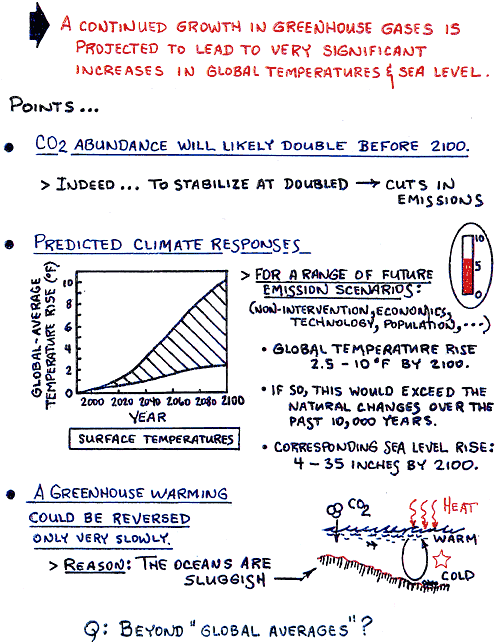 A CONTINUED GROWTH IN GREENHOUSE GASES IS
PROJECTED TO LEAD TO VERY SIGNIFICANT
INCREASES IN GLOBAL TEMPERATURES & SEA LEVEL.
POINTS...
• CO2 ABUNDANCE WILL LIKELY DOUBLE BEFORE 2100.
> INDEED... TO STABILIZE AT DOUBLED → CUTS IN
EMISSIONS
• PREDICTED CLIMATE RESPONSES
GLOBAL-AVERAGE
TEMPERATURE RISE (°F)
10
8
6
4
2
0
2000 2020 2040 2060 2080 2100
YEAR
SURFACE TEMPERATURES
10
5
0
> FOR A RANGE OF FUTURE
EMISSION SCENARIOS:
(NON-INTERVENTION, ECONOMICS,
TECHNOLOGY, POPULATION,...)
• GLOBAL TEMPERATURE RISE
2.5 - 10°F BY 2100.
• IF SO, THIS WOULD EXCEED THE
NATURAL CHANGES OVER THE
PAST 10,000 YEARS.
• CORRESPONDING SEA LEVEL RISE:
4 - 35 INCHES BY 2100.
• A GREENHOUSE WARMING
COULD BE REVERSED
ONLY VERY SLOWLY.
> REASON: THE OCEANS ARE
SLUGGISH
CO2
HEAT
WARM
COLD
Q: BEYOND "GLOBAL AVERAGES"?